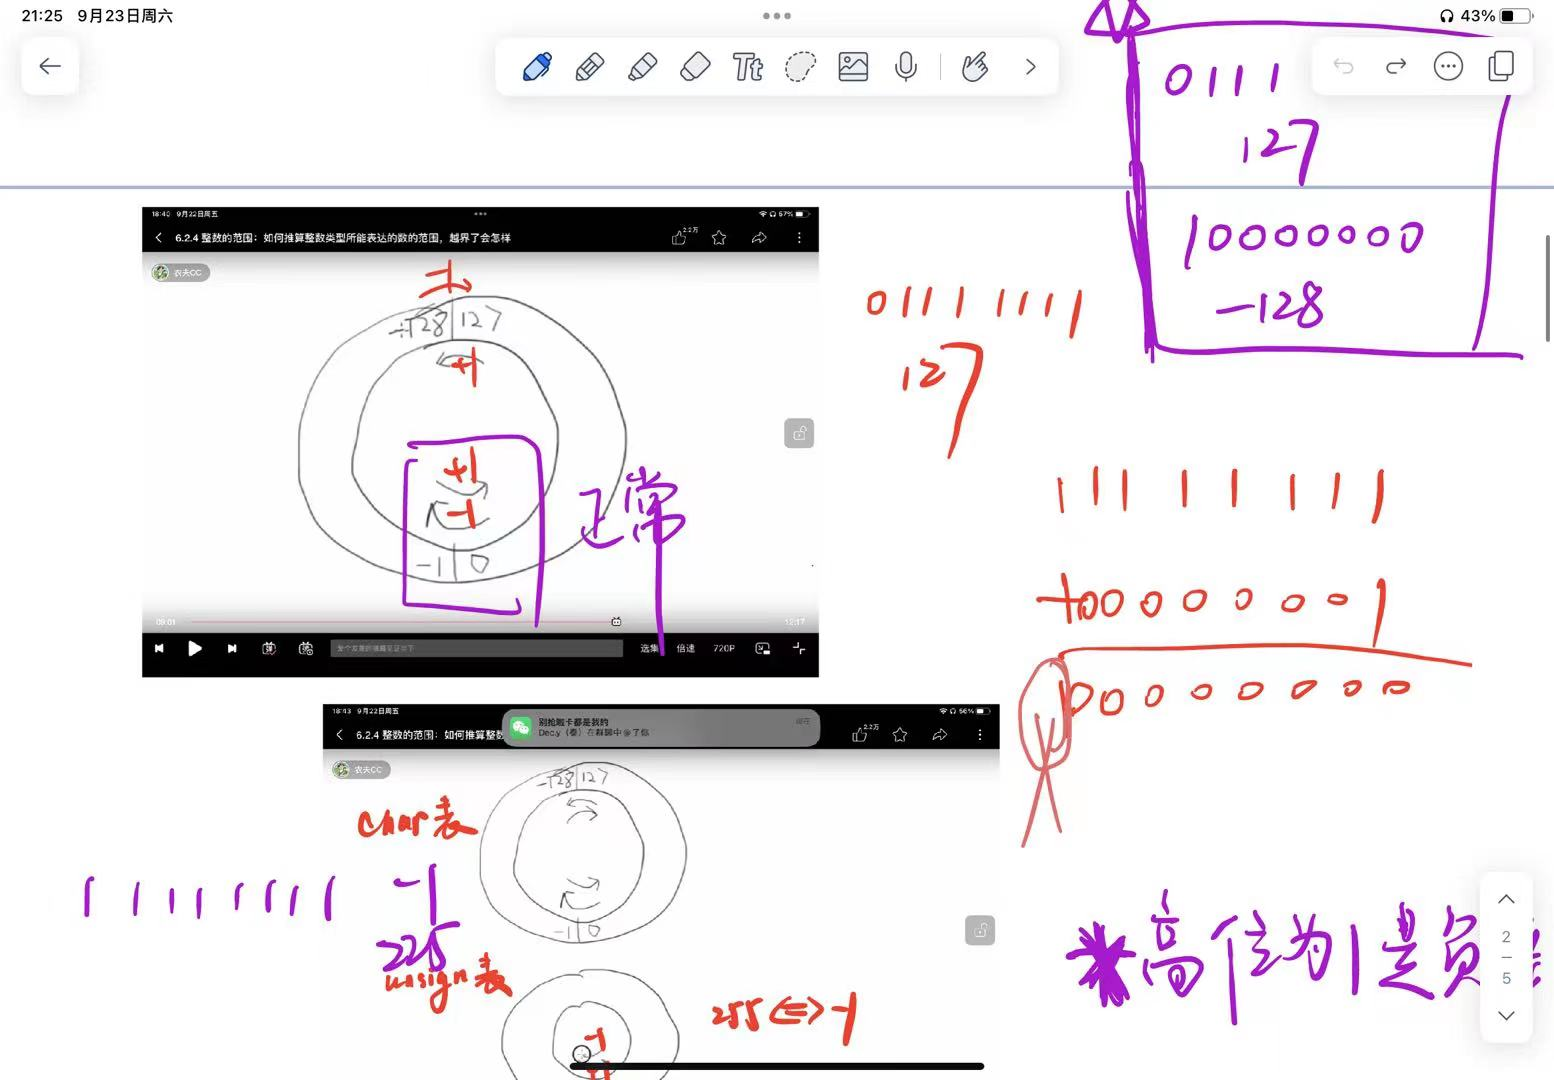 21:25 9月23日周六
43%
Tt
0111
127
10000000
-128
18:40 9月22日周五
57%
6.2.4 整数的范围：如何推算整数类型所能表达的数的范围，越界了会怎样
2.2万
农夫CC
-1
-128 127
+1
+1
-1
-1 0
正常
09:01
12:17
选集
倍速
720P
01111111
127
11111111
+00000001
100000000
18:43 9月22日周五
56%
6.2.4 整数的范围：如何推算整数
别抢啦卡都是我的
现在
Dec.y（秦）在群聊中@了你
2.2万
农夫CC
char表
-128 127
-1 0
11111111
-1
225
unsign表
255<=>-1
-1
+1
高位为1是负
2
5